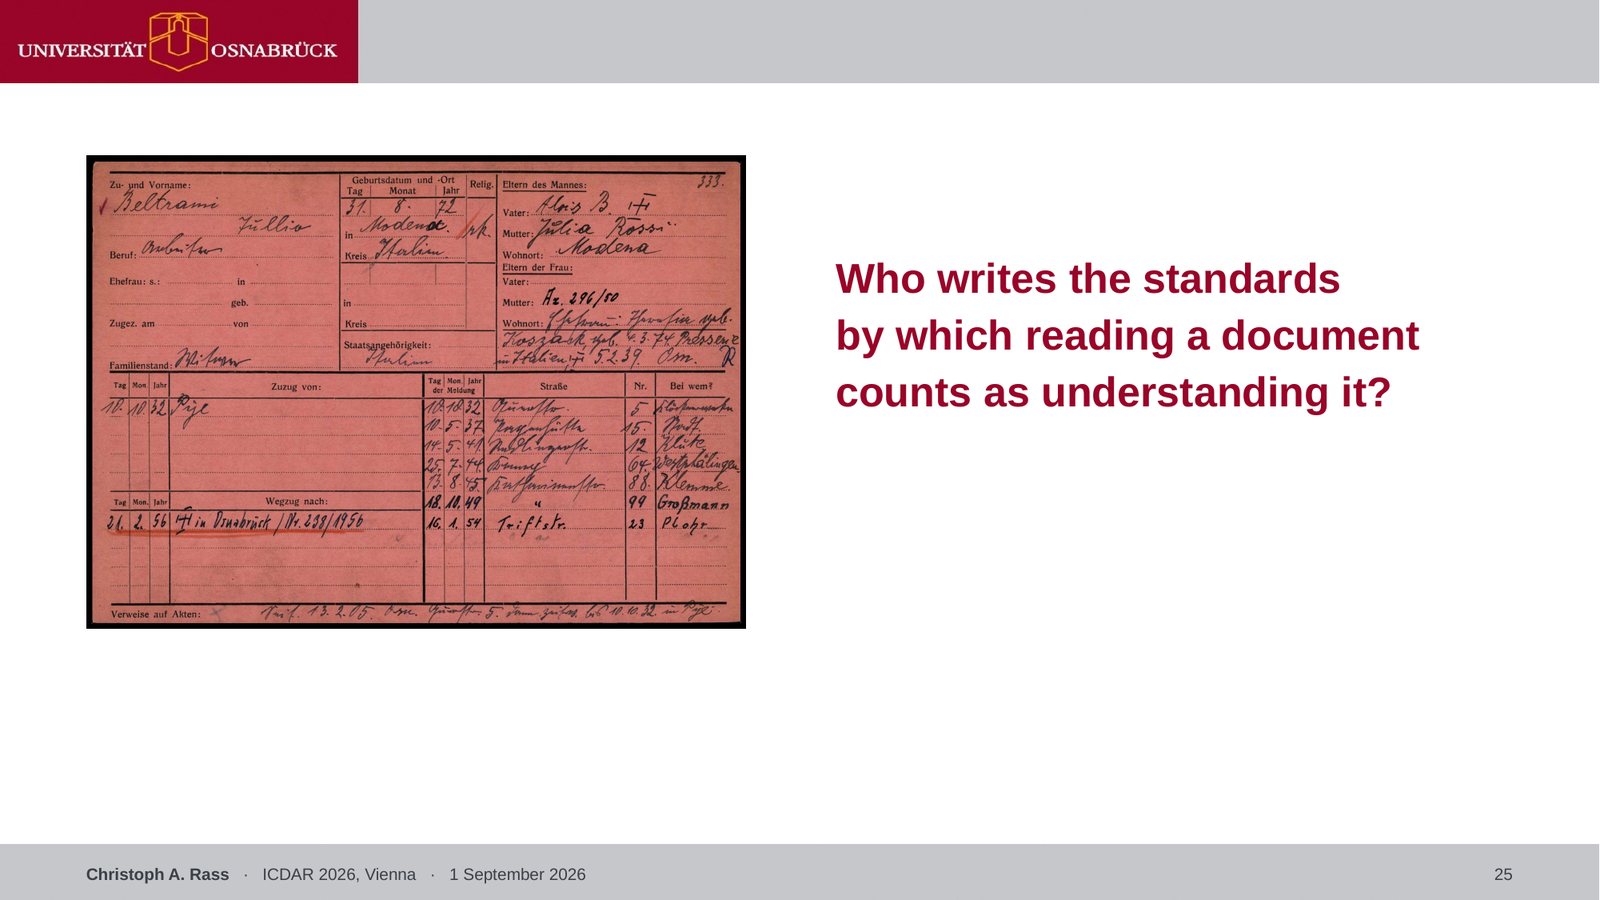 UNIVERSITÄT OSNABRÜCK
333.
Zu- und Vorname:
Beltrami
Jullio
Beruf: Arbeiter
Ehefrau: s.: in
geb.
Zugez. am von
Familienstand: Witwer
Geburtsdatum und -Ort
Tag Monat Jahr
31. 8. 72
in Modena.
Kreis Italien
in
Kreis
Staatsangehörigkeit:
Italien
Relig.
rk.
Eltern des Mannes:
Vater: Alois B.
Mutter: Julia Rossi
Wohnort: Modena
Eltern der Frau:
Vater:
Mutter: Az. 296/50
Wohnort: Ehefrau: Theresia geb.
Koszack, geb. 4.3.74
in Italien 5.2.39. Osn. R
Tag Mon. Jahr Zuzug von:
10. 10. 32 Pye
Tag Mon. Jahr Wegzug nach:
21. 2. 56 in Osnabrück /Nr. 238/1956
Tag Mon. Jahr der Meldung Straße Nr. Bei wem?
10. 10. 32 5
10. 5. 37 15.
14. 5. 41 12 Klute
25. 7. 44 64 Westphälinger
13. 8. 45 88. Klemme.
18. 10. 49 " 99 Großmann
16. 1. 54 Triftstr. 23 Plohr
Verweise auf Akten: 13.2.05. Osn. 5. dann zeitw. bis 10.10.32 in Pye
Who writes the standards
by which reading a document
counts as understanding it?
Christoph A. Rass · ICDAR 2026, Vienna · 1 September 2026
25